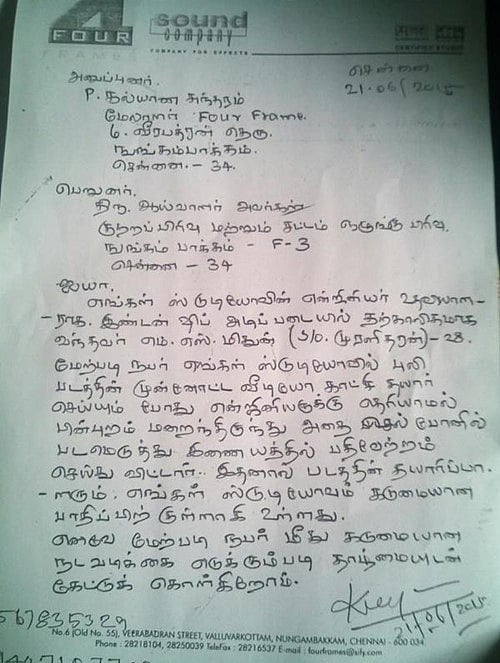 FOUR
FRAMES
sound
company
COMPANY FOR EFFECTS
CERTIFIED STUDIO
சென்னை
21.06/2015
அனுப்புனர்.
P. கல்யாண சுந்தரம்
மேலாளர் Four Frame.
6. வீரபத்ரன் தெரு.
நுங்கம்பாக்கம்.
சென்னை - 34.
பெறுனர்.
திரு. ஆய்வாளர் அவர்கள்
குற்றப்பிரிவு மற்றும் சட்டம் ஒழுங்கு பிரிவு.
நுங்கம் பாக்கம் - F-3
சென்னை - 34
ஐயா.
எங்கள் ஸ்டுடியோவின் என்ஜினியர்
- நாக. இண்டன் ஷிப் அடிப்படையில் தற்காலிகமாக
வந்தவர் எம். எஸ். மிதுன் (S/O. முரளிதரன்) - 28.
மேற்படி நபர் எங்கள் ஸ்டுடியோவில் புலி
படத்தின் முன்னோட்ட வீடியோ காட்சி தயார்
செய்யும் போது என்ஜினியருக்கு தெரியாமல்
பின்புறம் மறைந்திருந்து அதை செல் போனில்
படமெடுத்து இணையத்தில் பதிவேற்றம்
செய்து விட்டார்.. இதனால் படத்தின் தயாரிப்பா-
- ளரும். எங்கள் ஸ்டுடியோவும் கடுமையான
பாதிப்பிற்குள்ளாகி உள்ளது.
எனவே மேற்படி நபர் மீது கடுமையான
நடவடிக்கை எடுக்கும்படி தாழ்மையுடன்
கேட்டுக் கொள்கிறோம்.
21/06/2015
567835329
No.6 (Old No. 55), VEERABADRAN STREET, VALLUVARKOTTAM, NUNGAMBAKKAM, CHENNAI - 600 034.
Phone : 28218104, 28250039 TeleFax : 28216537 E-mail : fourframes@sify.com